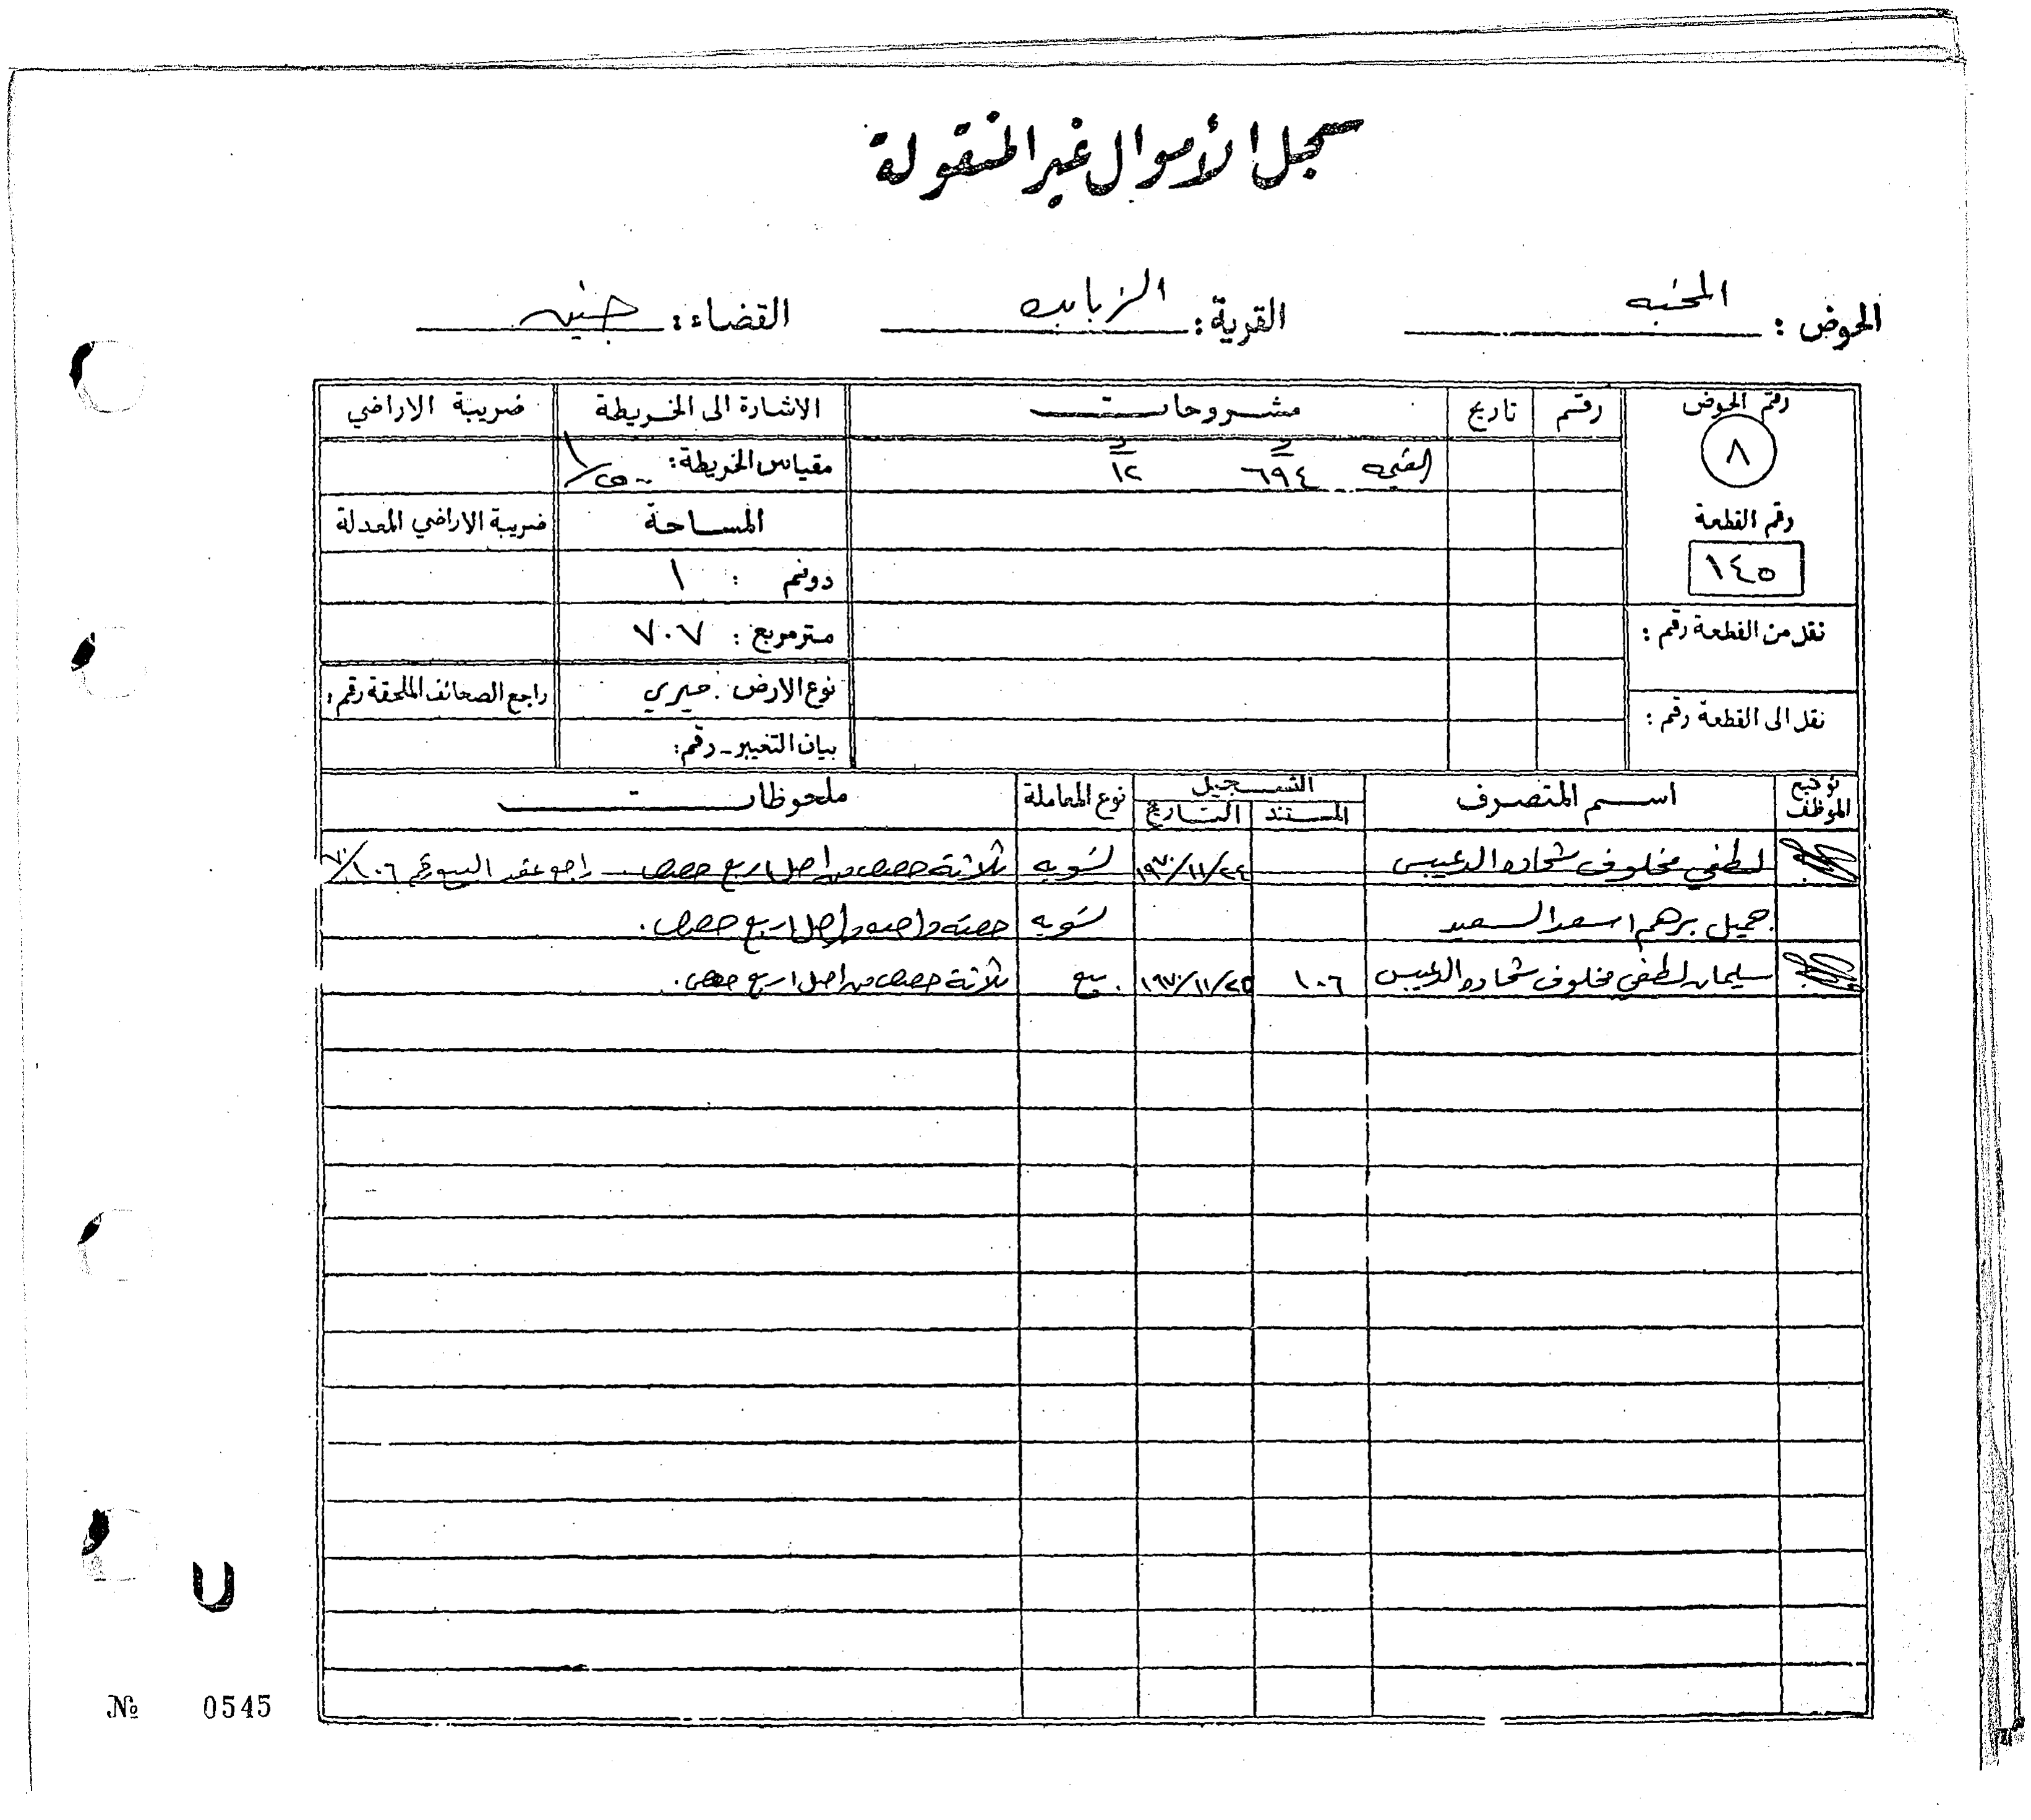 سجل الأموال غير المنقولة
الحوض : المخبه القرية : الزبابده القضاء : جنين
رقم الحوض رقم تاريخ مشروحات الاشارة الى الخريطة ضريبة الاراضي
٨ القيمه ٦٩٤ ١٢ مقياس الخريطة : ١/٢٥٠٠
رقم القطعة المساحة ضريبة الاراضي المعدلة
١٤٥ دونم : ١
نقل من القطعة رقم : متر مربع : ٧٠٧
نوع الارض : ميري راجع الصحائف الملحقة رقم :
نقل الى القطعة رقم :
بيان التغيير - رقم :
توقيع الموظف اسم المتصرف التسجيل نوع المعاملة ملحوظات
المستند التاريخ
لطفي مخلوف شحاده الدعيبس ١٩٧٠/١١/٢٤ تسويه ثلاثة حصص من اصل اربع حصص - راجع عقد البيع رقم ٧٠/١٠٦
جميل برهم اسعد السعيد تسويه حصة واحده من اصل اربع حصص .
سليمان لطفي مخلوف شحاده الدعيبس ١٠٦ ١٩٧٠/١١/٢٥ بيع ثلاثة حصص من اصل اربع حصص .
U
№ 0545